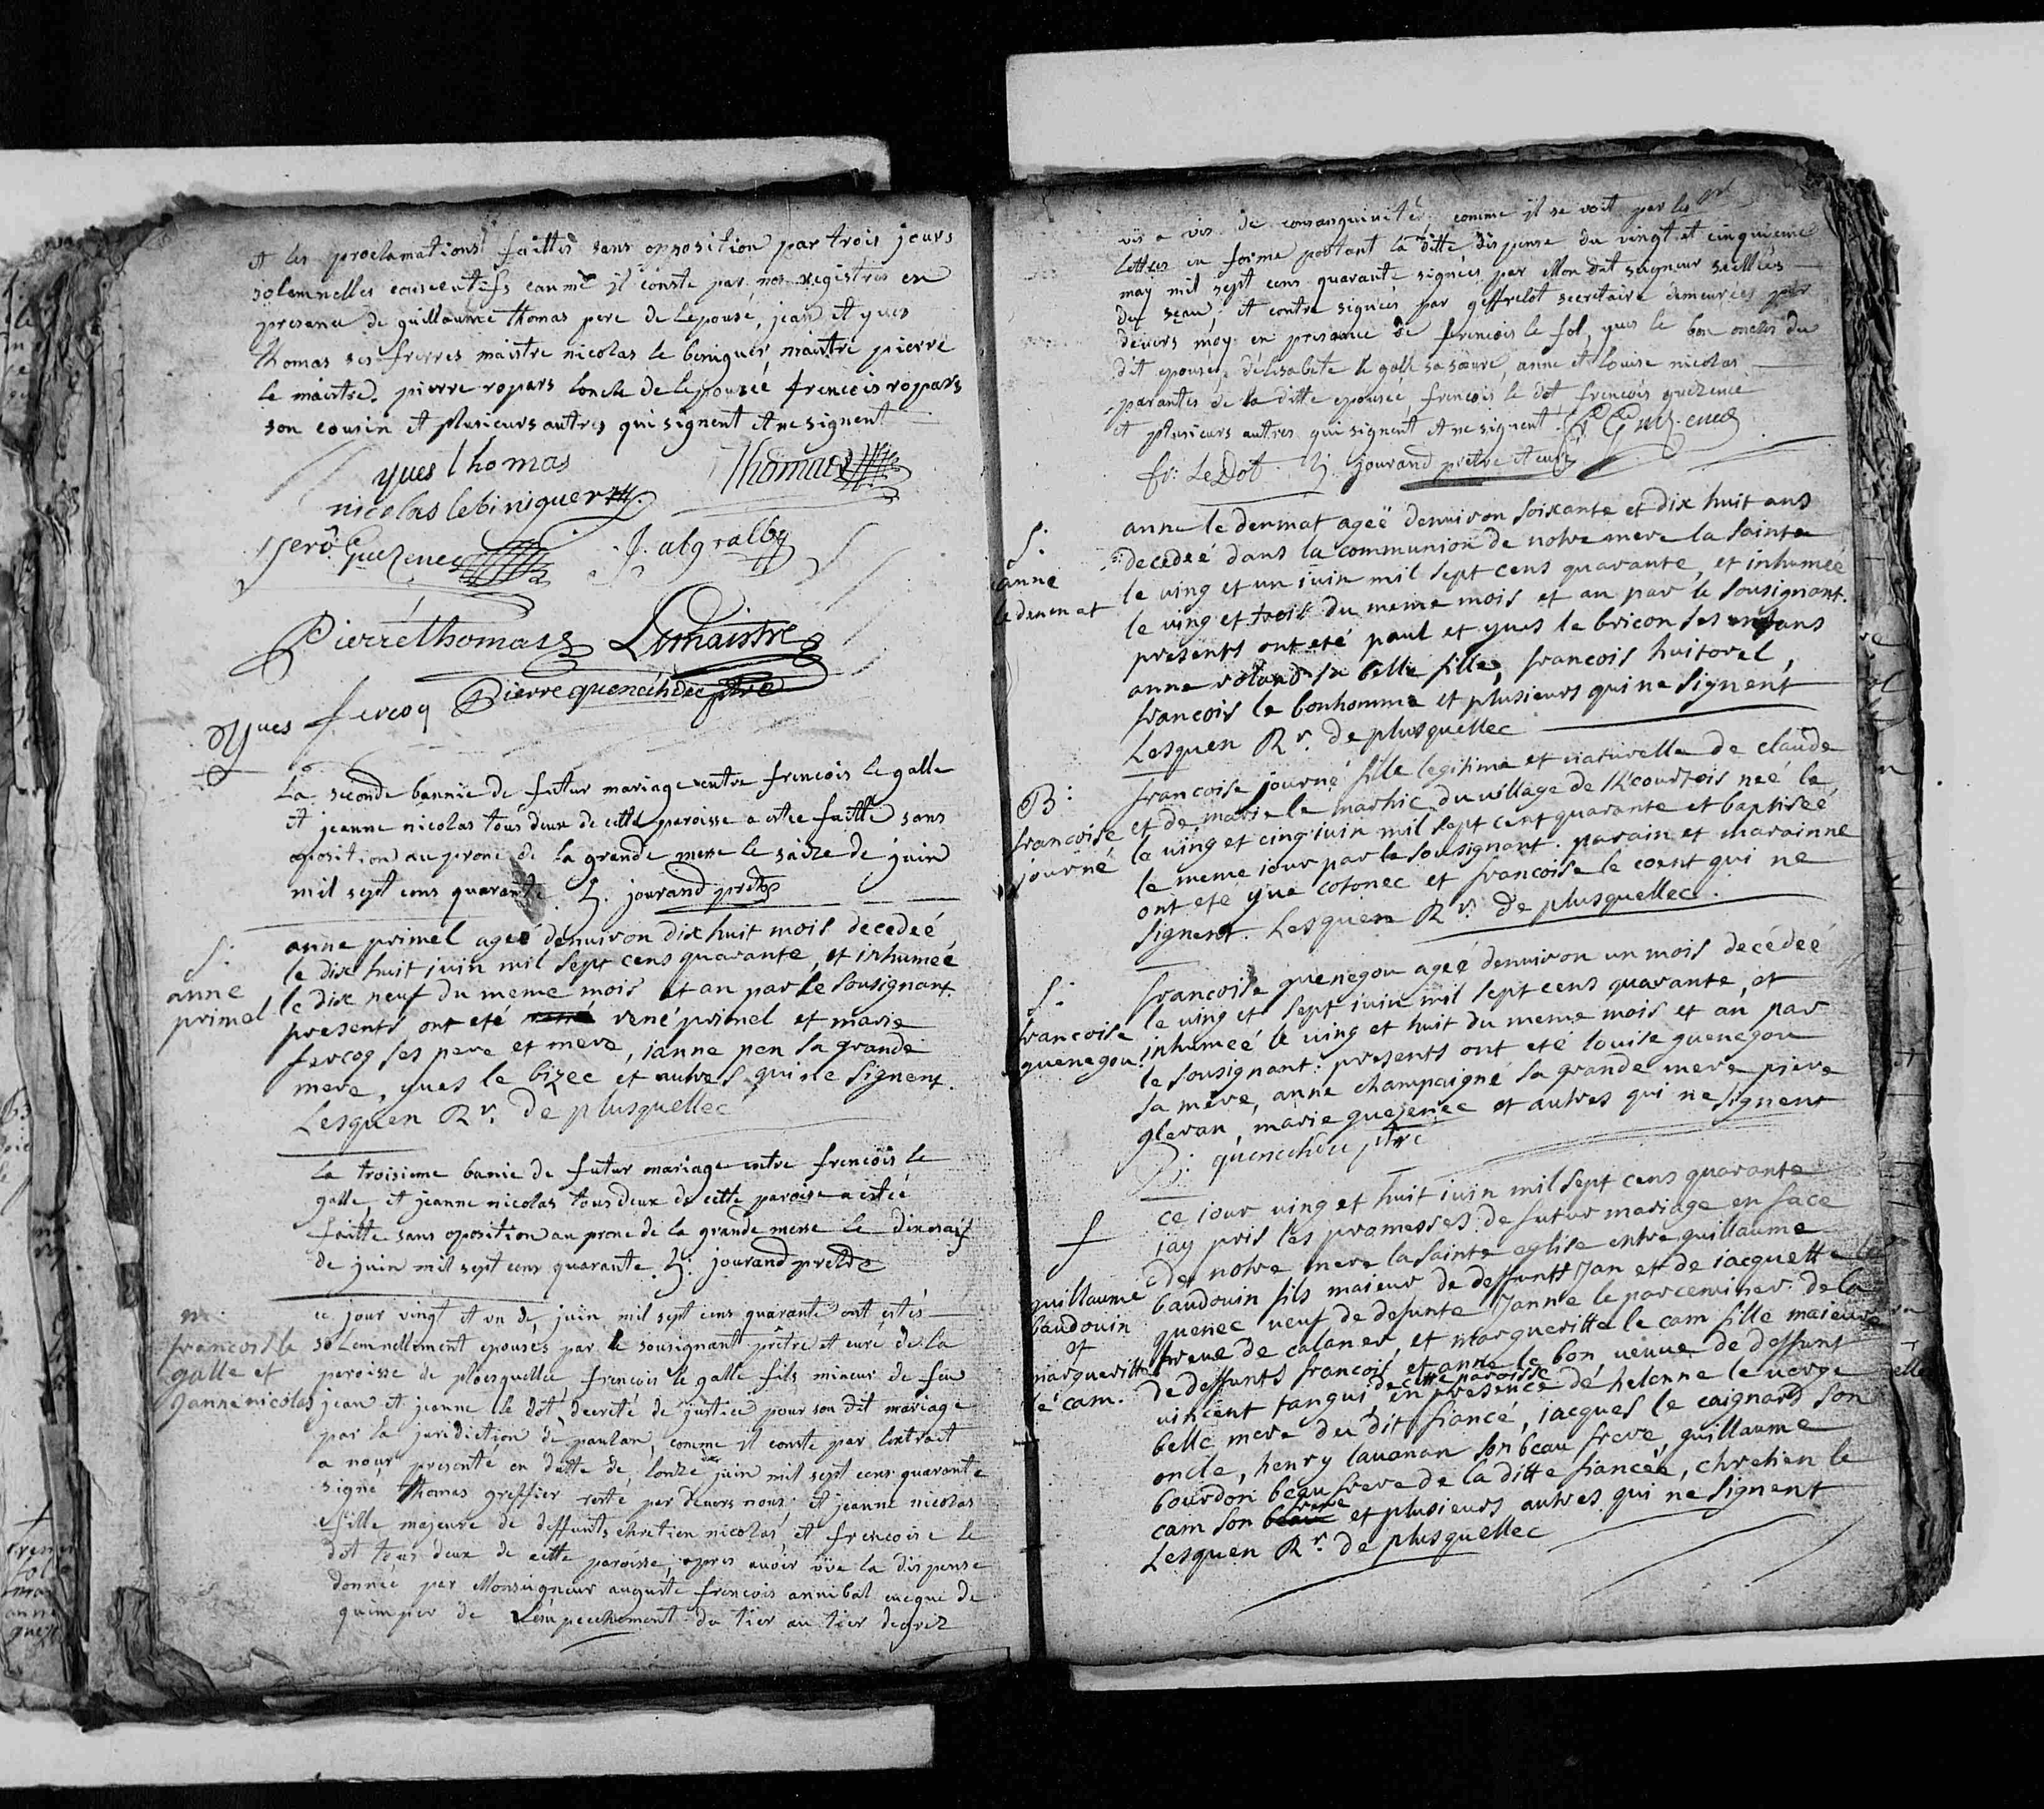 et les proclamations faittes sans opposition par trois jours
solemnelles consecutifs comme il conste par nos registres en
presence de guillaume thomas pere de lepouse, jean et yves
thomas ses frerres maistre nicolas le biniguer maistre pierre
le maistre. pierre ropars loncle de lepouseé francois ropars
son cousin et plusieurs autres qui signent et ne signent
yves thomas
Thomas
nicolas lebiniguer
Guezenec
J. abgralby
Pierre thomas
Lemaistre
yves fercoq
Pierre quenechdec ptre
La seconde bannie de futur mariage entre francois le galle
et jeanne nicolas tous deux de cette paroisse a estee faitte sans
oposition au prone de la grande messe le saize de juin
mil sept cens quarante. jourand pretre
S:
anne
primel
anne primel ageé denuiron dix huit mois decedeé
le dix huit juin mil sept cens quarante, et inhumeé
le dix neuf du meme mois et an par le sousignant.
presents ont eté rené primel et marie
fercoq ses pere et mere, ianne pen sa grande
mere, yues le bizec et autres qui ne signent.
Lesquen Rr. de plusquellec
La troisieme banie de futur mariage entre francois le
galle, et jeanne nicolas tous deux de cette paroise a estée
faitte sans oposition au prone de la grande messe le dixneuf
de juin mil sept cens quarante. jourand pretre
m:
francois le
galle et
Janne nicolas
ce jour vingt et un de juin mil sept cens quarante ont estés
solemnellement epousés par le sousignant prêtre et curé de la
paroisse de ploesquellec francois le galle fils mineur de feu
jean et jeanne le dot decreté de justice pour son dit mariage
par la juridiction de paulan, comme il conste par lextrait
a nous presenté en datte de lonze juin mil sept cens quarante
signé thomas greffier resté par devers nous, et jeanne nicolas
fille majeure de deffunts chretien nicolas, et francoise le
dot tous deux de cette paroisse, apres avoir vüe la dispense
donnée par Monseigneur auguste francois annibal eveque de
quimper de lempechement du tier au tier degrez
vis a vis de consanguinité comme il se voit par les
lettres en forme portant la ditte dispense du vingt et cinquieme
may mil sept cens quarante signées par Mon dit seigneur scellées
du seau, et contre signées par geffrelot secretaire demeurées par
devers moy en presance de francois le fol, yves le bon oncles du
dit epousé, délisabete le galle sa soeure, anne et louise nicolas
parantes de la ditte epouseé francois le dot francois guezence
et plusieurs autres qui signent et ne signent. Guezenec
fr: Le Dot jourand pretre et curé
S:
anne
le denmat
anne le denmat ageë denuiron soixante et dix huit ans
decedeé dans la communion de notre mere la sainte
le ving et un iuin mil sept cens quarante, et inhumeé
le ving et trois du meme mois et an par le sousignant.
présents ont eté paul et yues le bricon ses enfans
anne roland sa belle fille, francois huitorel,
francois le bonhomme et plusieurs qui ne signent
Lesquen Rr. de plusquellec
B:
francoise
journé
francoise journé fille legitime et naturelle de claude
et de marie le marhic du village de K/courtois neé le
le ving et cinq iuin mil sept cent quarante et baptiseé
le meme iour par le sousignant. parain et marainne
ont eté yue cotonec et francoise le coent qui ne
signent. Lesquen Rr. de plusquellec.
S:
francoise
quenegou.
francoise quenegou ageé denuiron un mois decédeé
le ving et sept iuin mil sept cens quarante, et
inhumeé le ving et huit du meme mois et an par
le sousignant: presents ont eté louise quenegou
sa mère, anne champaigné sa grande mere, piere
glevan, marie guezenec et autres qui ne signent
P: quenechdec ptre
f
guillaume
baudouin
et
margueritte
le cam.
ce iour ving et huit iuin mil sept cens quarante
iay pris les promesses de futur mariage en face
de notre mere la sainte eglise entre guillaume
baudouin fils maieur de deffunts Jan et de iacquette le
quenec veuf de defunte Janne le parceminer de la
treve de calanes, et margueritte le cam fille maieure
de deffunts francois, et anne le bon veuve de deffunt
vincent tangui, de cette paroisse en presence dé helenne le verge
belle mere du dit fiancé, iacques le caignard son
oncle, henry lauanan son beau frere, guillaume
bourdon beau frere de la ditte fiancée, chretien le
cam son frere et plusieurs autres qui ne signent
Lesquen Rr. de plusquellec